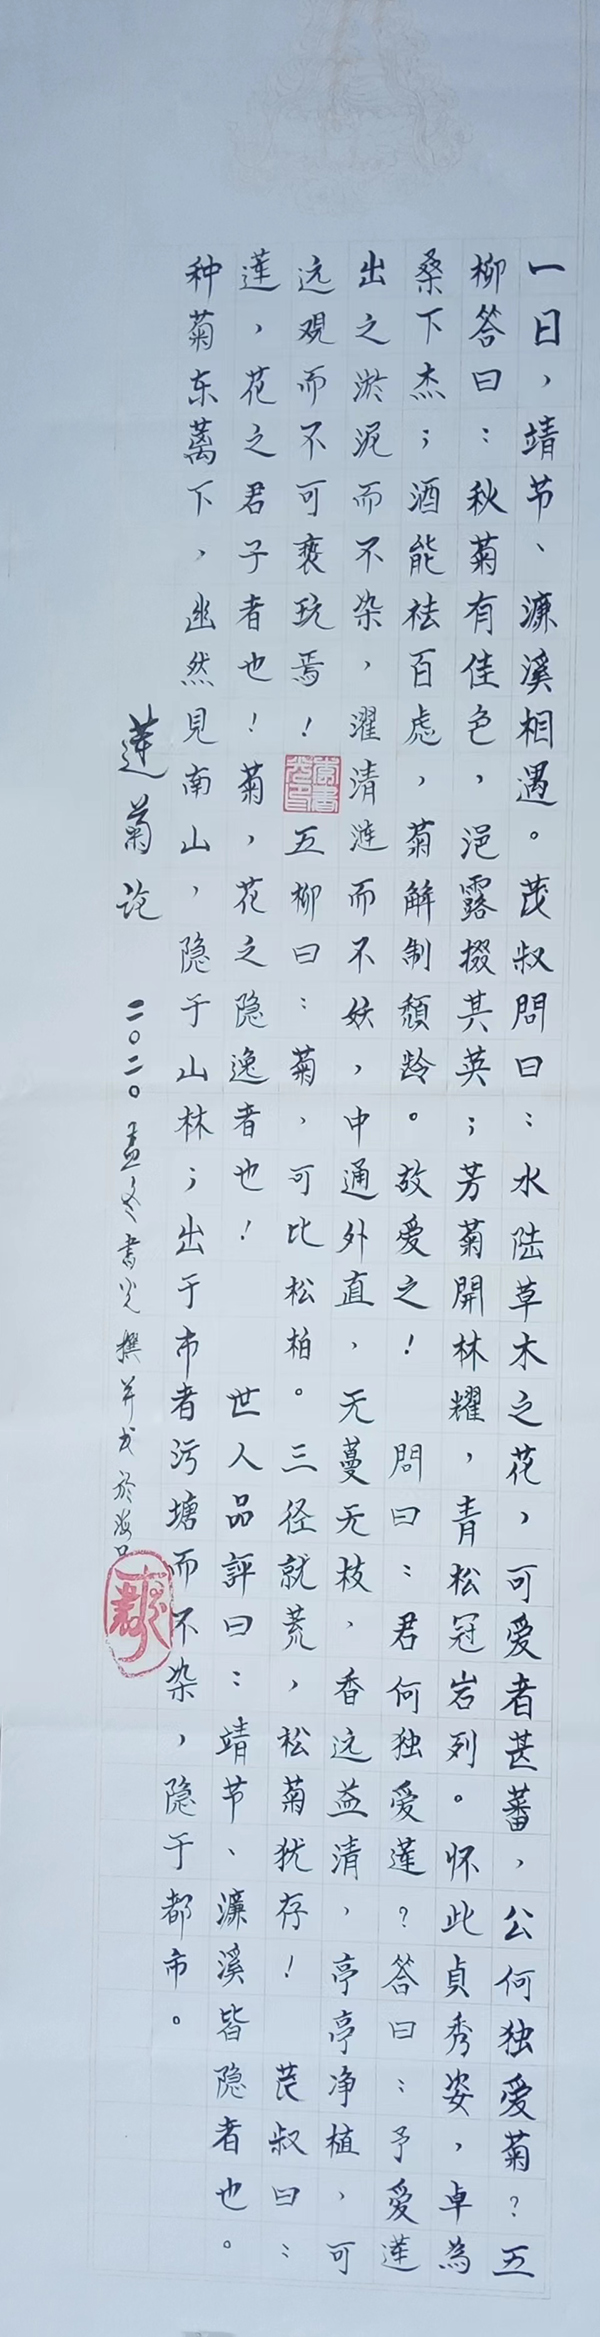 一日，靖节、濂溪相遇。茂叔問曰：水陆草木之花，可爱者甚蕃，公何独爱菊？五
柳答曰：秋菊有佳色，浥露掇其英；芳菊開林耀，青松冠岩列。怀此貞秀姿，卓為
桑下杰；酒能祛百虑，菊解制頹龄。故爱之！問曰：君何独爱莲？答曰：予爱莲
出之淤泥而不染，濯清涟而不妖，中通外直，无蔓无枝，香远益清，亭亭净植，可
远观而不可亵玩焉！五柳曰：菊，可比松柏。三径就荒，松菊犹存！茂叔曰：
莲，花之君子者也！菊，花之隐逸者也！世人品評曰：靖节、濂溪皆隐者也。
种菊东蓠下，幽然見南山，隐于山林；出于市者污塘而不染，隐于都市。
莲菊论
二〇二〇孟冬書光撰并书於海口